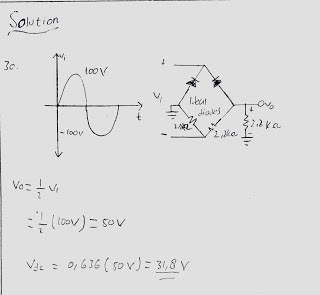 Solution
30.
Vi
100V
-100V
t
+
Vi
Ideal
diodes
2.2kΩ
2.2kΩ
-
Vo
+
2.2kΩ
-
Vo = 1/2 Vi
= 1/2 (100V) = 50V
Vdc = 0,636 (50V) = 31,8 V